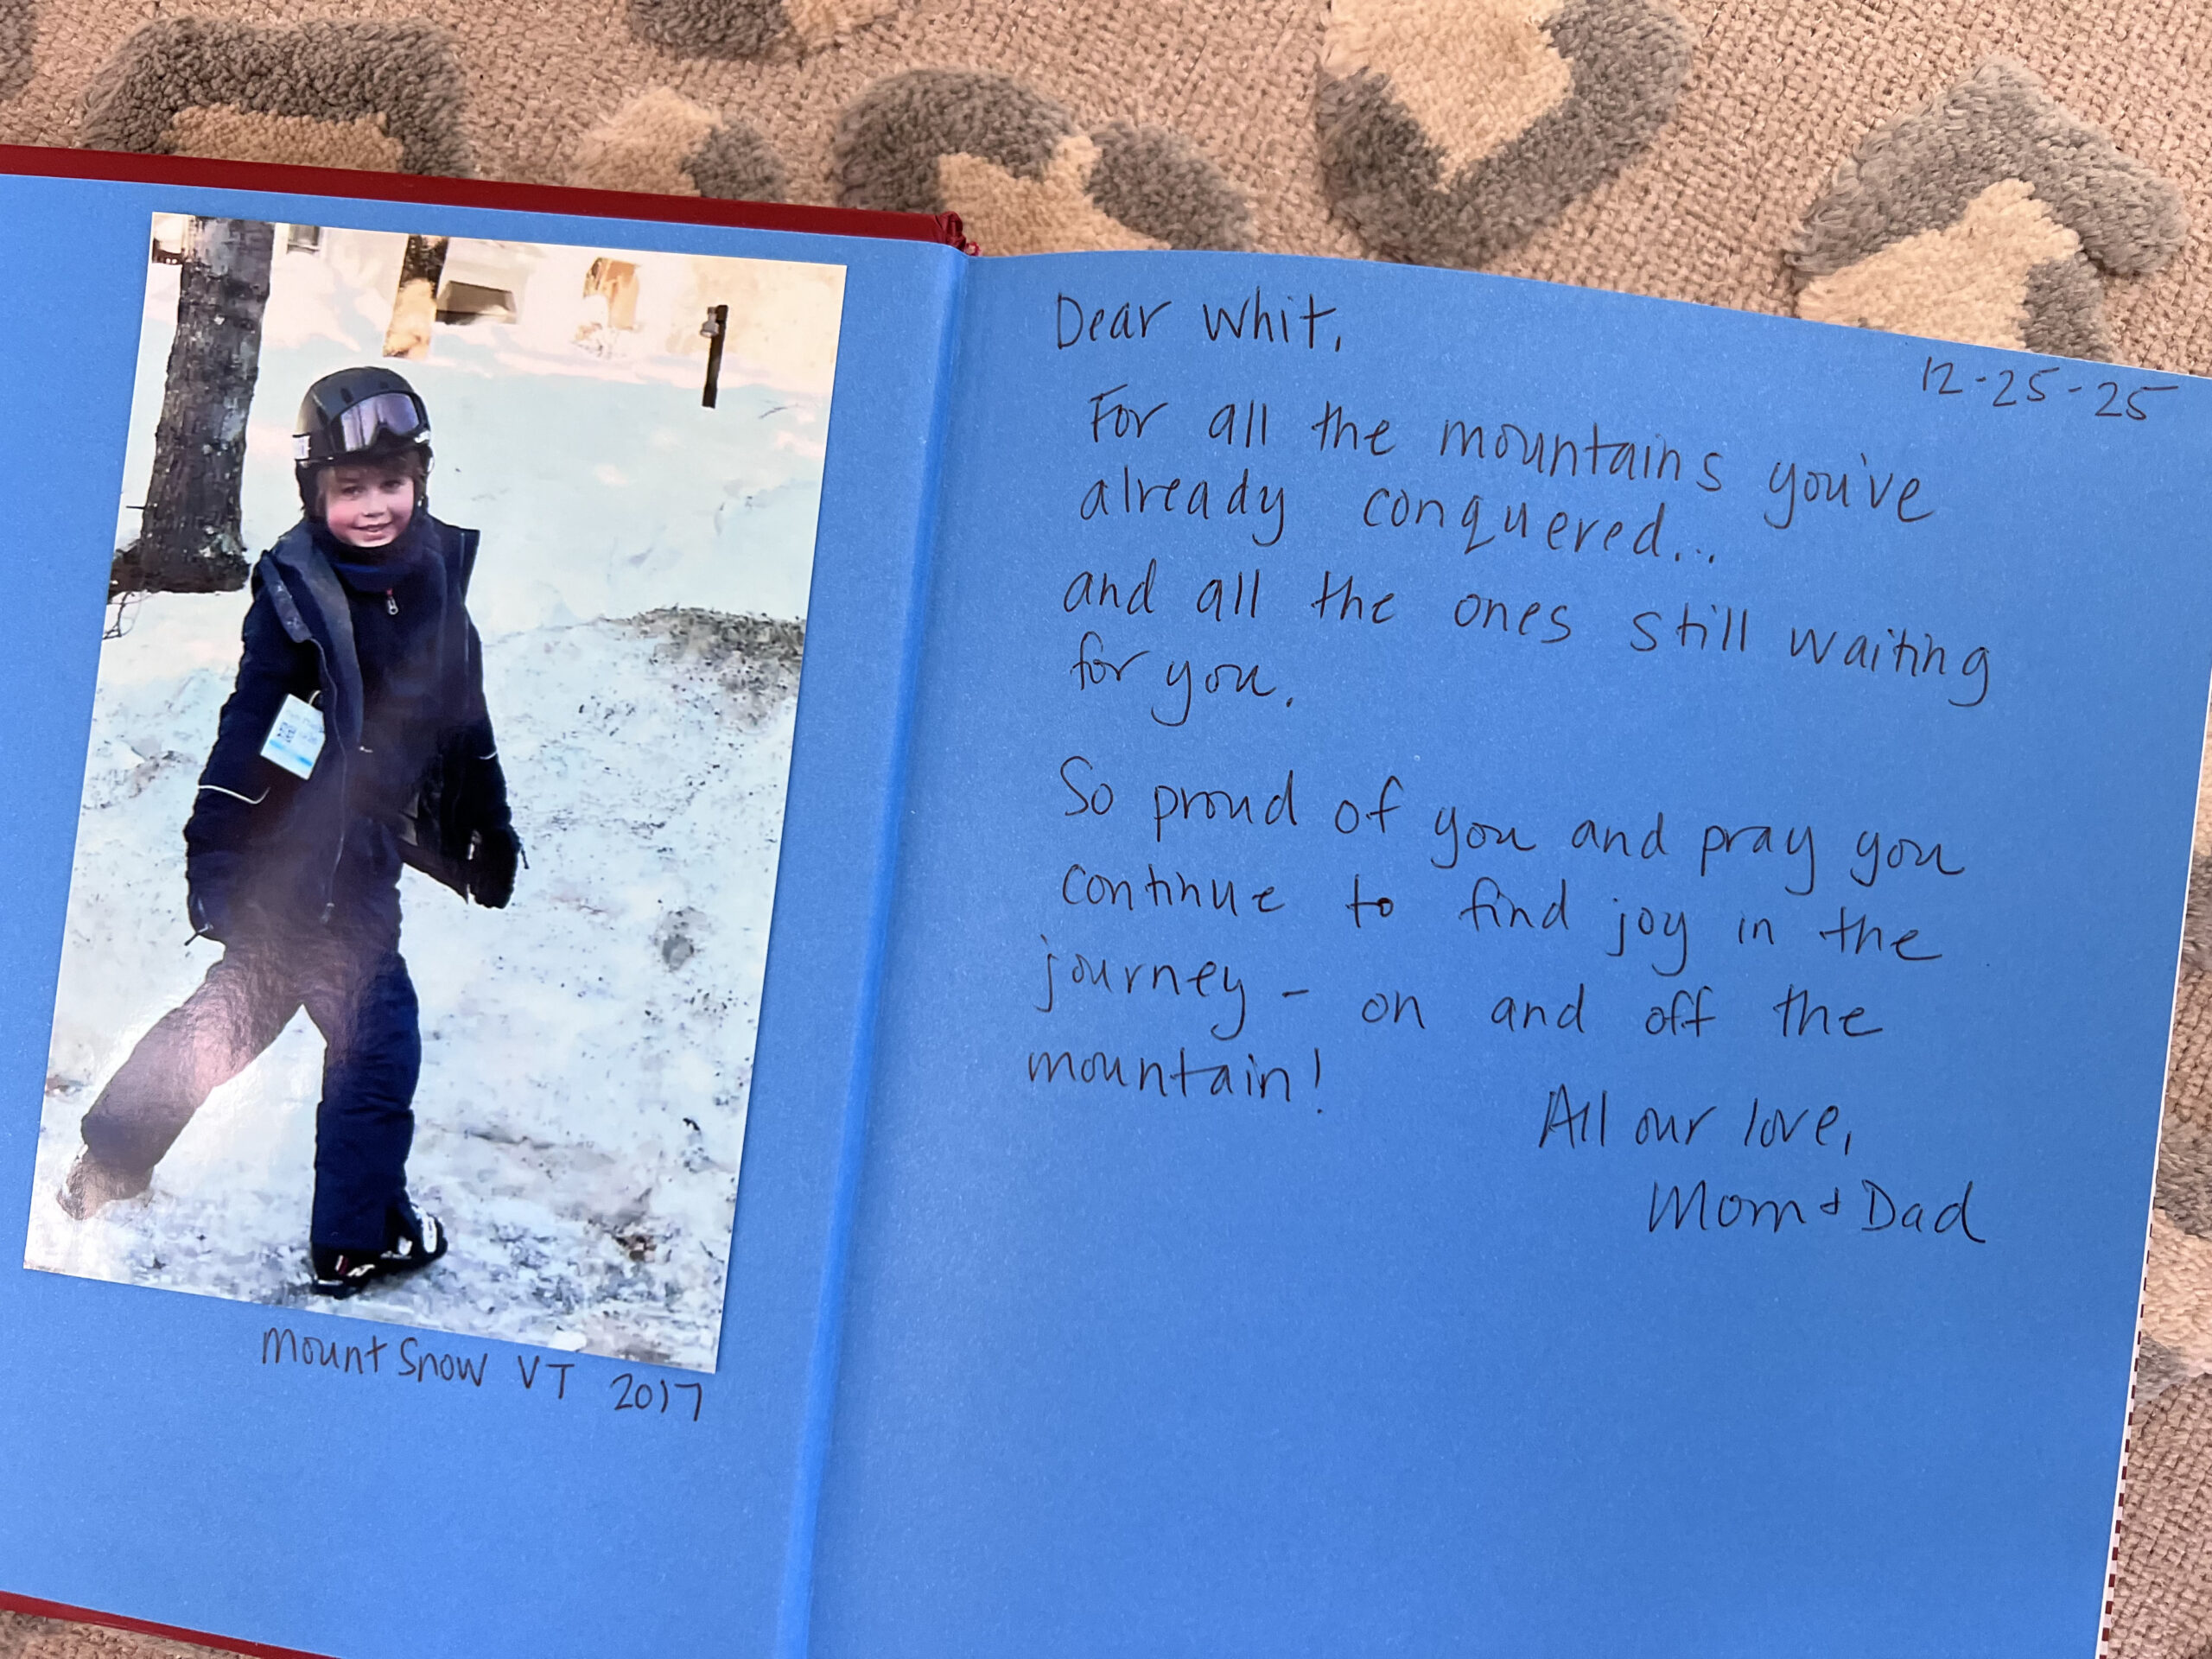 Mount Snow VT 2017
Dear Whit,
12-25-25
For all the mountains you've
already conquered...
and all the ones still waiting
for you.
So proud of you and pray you
continue to find joy in the
journey - on and off the
mountain!
All our love,
Mom + Dad